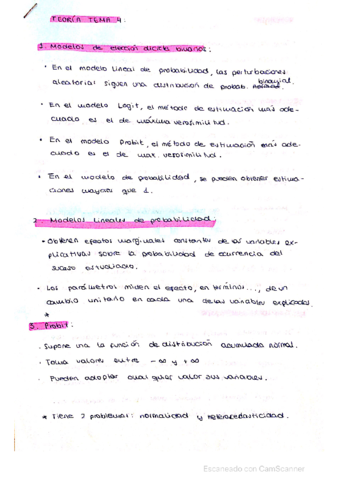 TEORÍA TEMA 4:
1. Modelos de elección discreta binarios:
· En el modelo lineal de probabilidad, las perturbaciones
aleatorias siguen una distribución de probab. binomial.
normal
· En el modelo Logit, el método de estimación más ade-
cuado es el de máxima verosimilitud.
· En el modelo Probit, el método de estimación más ade-
cuado es el de max. verosimilitud.
· En el modelo de probabilidad, se pueden obtener estima-
ciones mayores que 1.
2. Modelos lineales de probabilidad:
· Obtienen efectos marginales constantes de las variables ex-
plicativas sobre la probabilidad de ocurrencia del
suceso estudiado.
· Los parámetros miden el efecto, en términos..., de un
cambio unitario en cada una de las variables explicadas.
*
3. Probit:
· Supone una la función de distribución acumulada normal.
· Toma valores entre -∞ y +∞
· Pueden adoptar cualquier valor sus variables.
* Tiene 2 problemas: normalidad y heterocedasticidad.
Escaneado con CamScanner